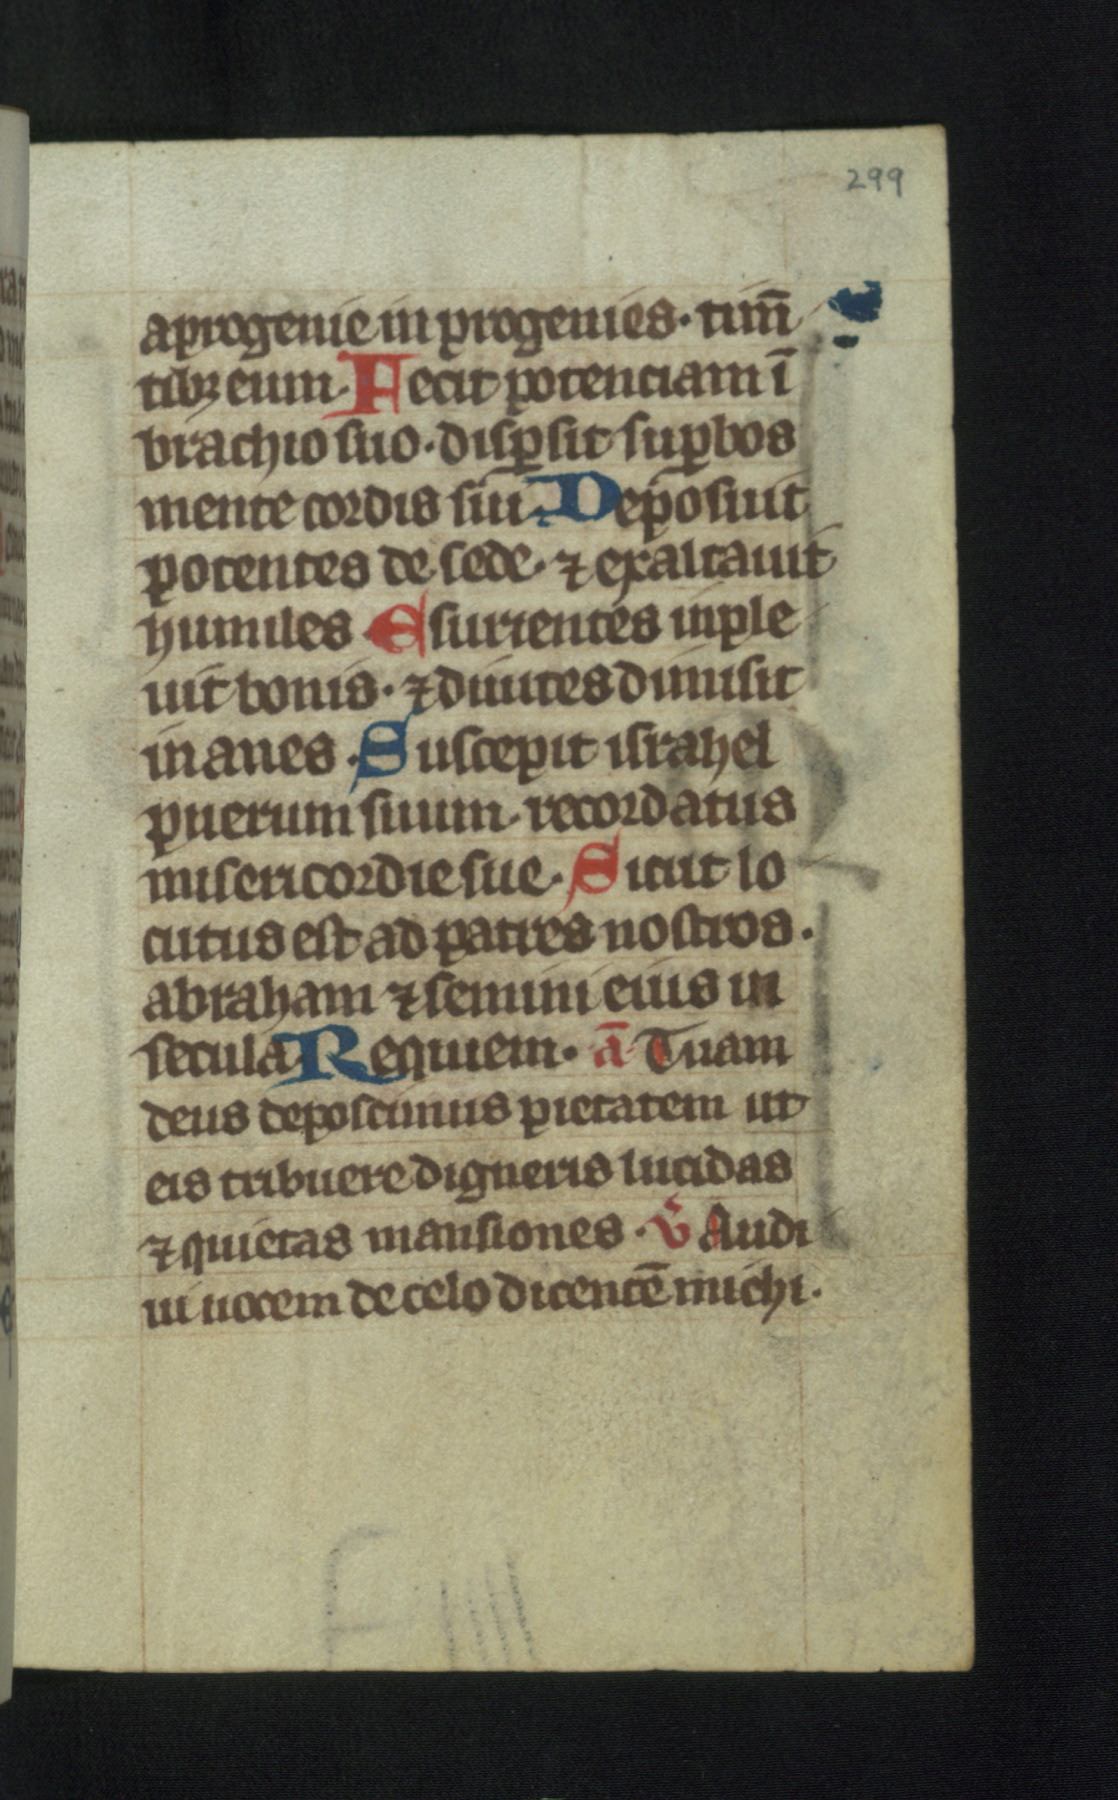 299
aprogenie in progenies· tim̅
tibꝫ eum· Fecit potenciam ī
brachio suo· disꝑsit suꝑbos
mente cordis sui· Deposuit
potentes de sede· ⁊ exaltauit
humiles· Esurientes inple
uit bonis· ⁊ diuites dimisit
inanes· Suscepit israhel
puerum suum· recordatus
misericordie sue· Sicut lo
cutus est ad patres nostros·
abraham ⁊ semini eius in
secula Requiem· a̅ Tuam
deus deposcimus pietatem ut
eis tribuere digneris lucidas
⁊ quietas mansiones· v̅ Audi
ui uocem de celo dicentē michi·